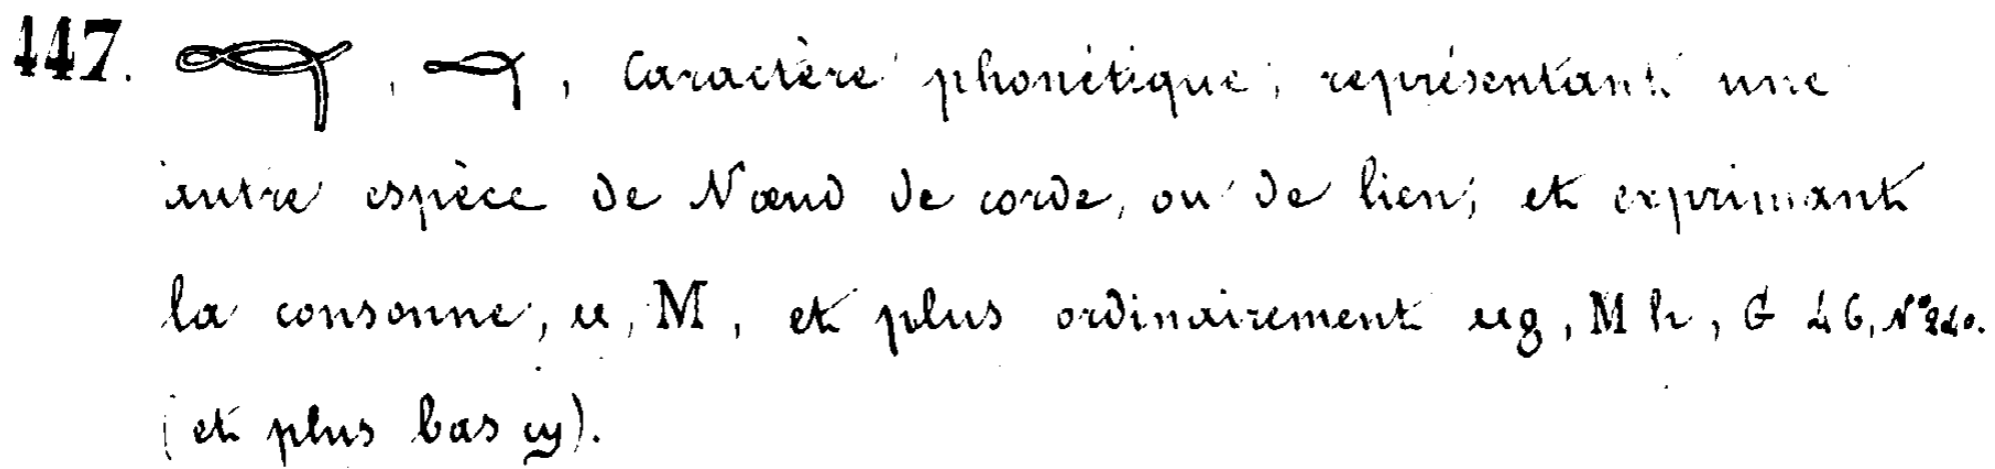 447. , , Caractère phonétique, représentant une
autre espèce de Nœud de corde, ou de lien; et exprimant
la consonne, ⲙ, M, et plus ordinairement ⲙϩ, Mh, G 46, N° 240.
(et plus bas ϣ).